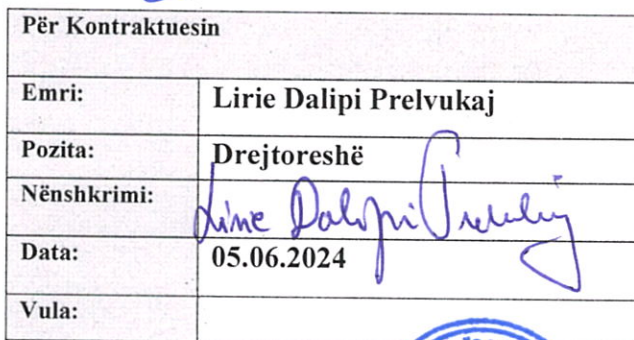 Për Kontraktuesin
Emri: Lirie Dalipi Prelvukaj
Pozita: Drejtoreshë
Nënshkrimi: Lirie Dalipi Prelvukaj
Data: 05.06.2024
Vula: